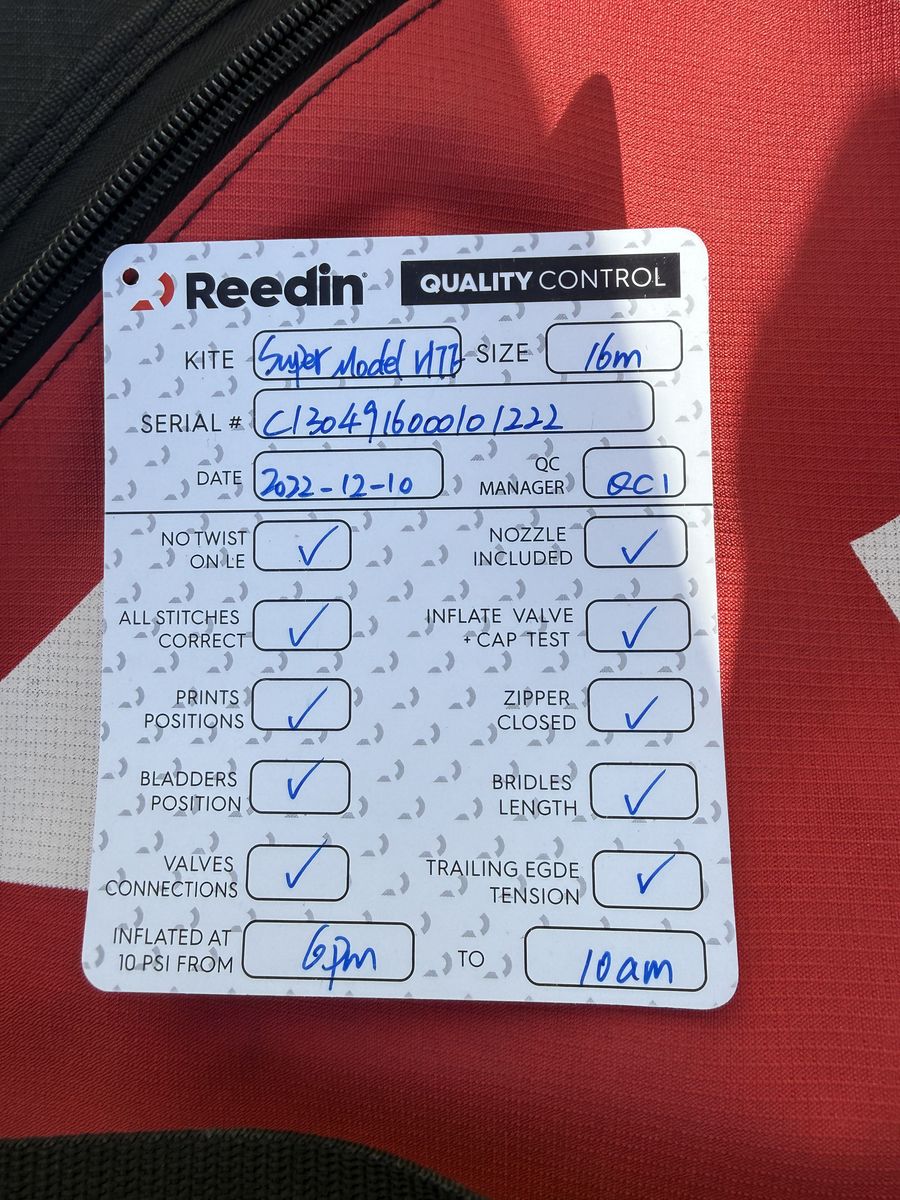 Reedin QUALITY CONTROL
KITE Super Model HTT SIZE 16m
SERIAL # C130491600010 1222
DATE 2022-12-10 QC MANAGER QC1
NO TWIST ON LE ✓ NOZZLE INCLUDED ✓
ALL STITCHES CORRECT ✓ INFLATE VALVE + CAP TEST ✓
PRINTS POSITIONS ✓ ZIPPER CLOSED ✓
BLADDERS POSITION ✓ BRIDLES LENGTH ✓
VALVES CONNECTIONS ✓ TRAILING EGDE TENSION ✓
INFLATED AT 10 PSI FROM 6pm TO 10am